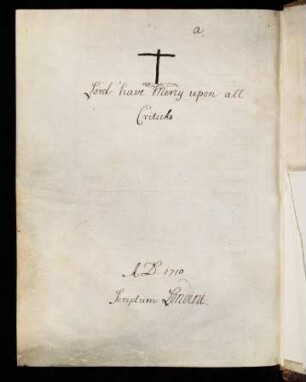 a.
Lord have Mercy upon all
Criticks
A.D. 1710
Scriptum Londini.